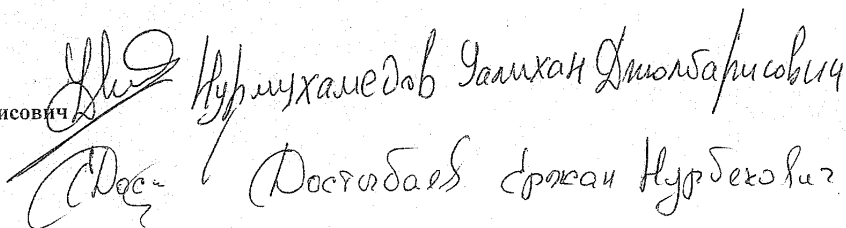 исович Нурмухамедов Уалихан Джолбарисович
Дос- Достыбаев Ержан Нурбекович